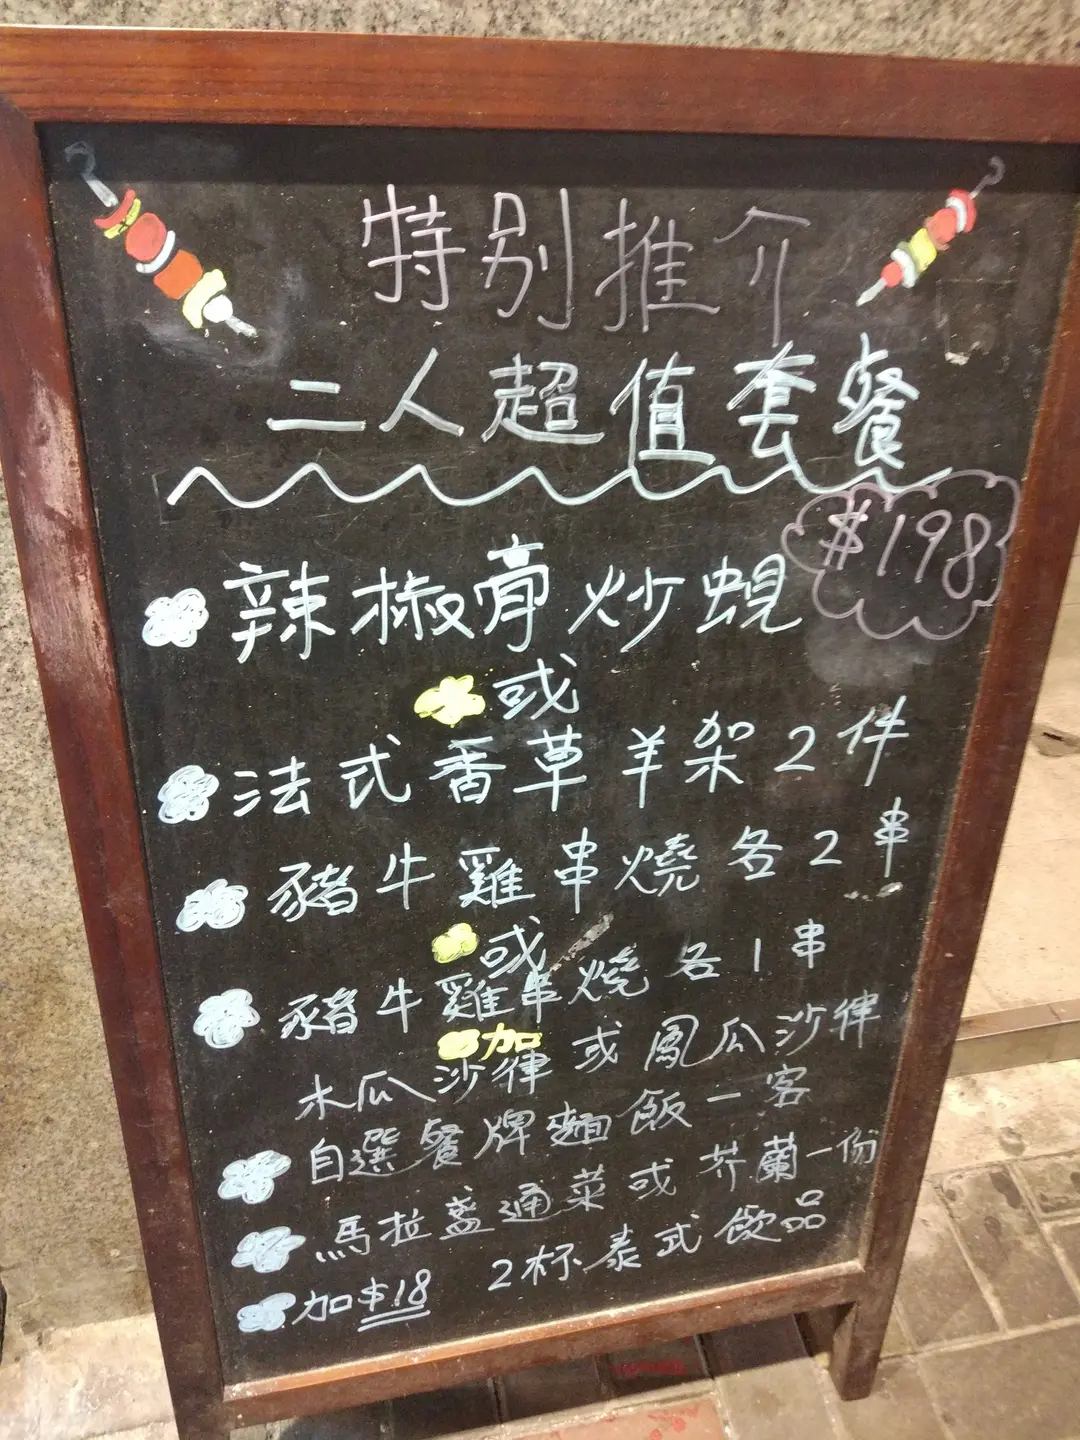 特別推介
二人超值套餐
$198
辣椒膏炒蜆
或
法式香草羊架2件
豬牛雞串燒各2串
或
豬牛雞串燒各1串
加
木瓜沙律或鳳瓜沙律
自選餐牌麵飯一客
馬拉盞通菜或芥蘭一份
加$18 2杯泰式飲品